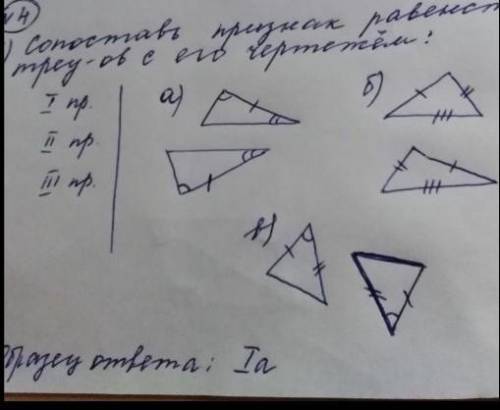 №4
) Сопоставь признак равенст
треу-ов с его чертежём:
I пр.
II пр.
III пр.
а)
б)
в)
бразец ответа: Iа